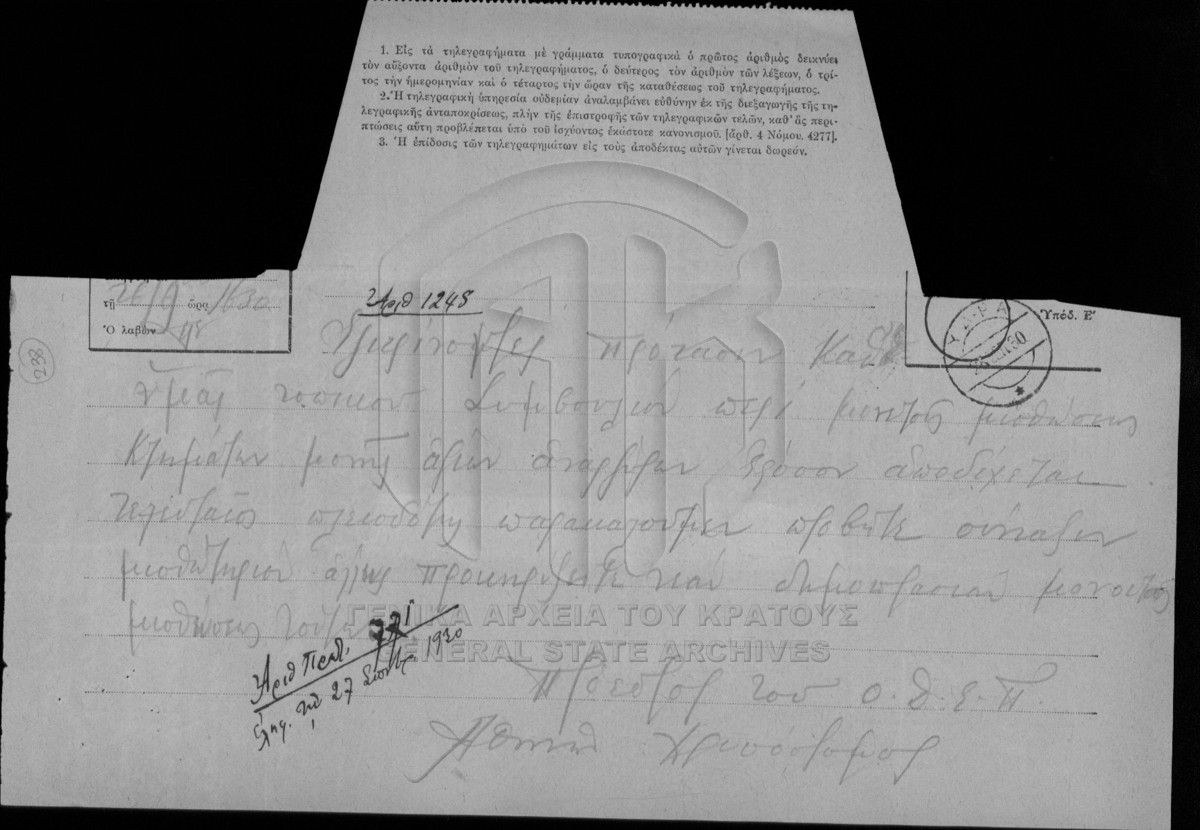 1. Εἰς τὰ τηλεγραφήματα μὲ γράμματα τυπογραφικὰ ὁ πρῶτος ἀριθμὸς δεικνύει
τὸν αὔξοντα ἀριθμὸν τοῦ τηλεγραφήματος, ὁ δεύτερος τὸν ἀριθμὸν τῶν λέξεων, ὁ τρί-
τος τὴν ἡμερομηνίαν καὶ ὁ τέταρτος τὴν ὥραν τῆς καταθέσεως τοῦ τηλεγραφήματος.
2. Ἡ τηλεγραφικὴ ὑπηρεσία οὐδεμίαν ἀναλαμβάνει εὐθύνην ἐκ τῆς διεξαγωγῆς τῆς τη-
λεγραφικῆς ἀνταποκρίσεως, πλὴν τῆς ἐπιστροφῆς τῶν τηλεγραφικῶν τελῶν, καθ' ἃς περι-
πτώσεις αὕτη προβλέπεται ὑπὸ τοῦ ἰσχύοντος ἑκάστοτε κανονισμοῦ. [ἄρθ. 4 Νόμου. 4277].
3. Ἡ ἐπίδοσις τῶν τηλεγραφημάτων εἰς τοὺς ἀποδέκτας αὐτῶν γίνεται δωρεάν.
τῇ 26/9 ὥρᾳ 1630
Ὁ λαβὼν
Ἀριθ 1248
Ὑπόδ. Ε'
ΥΔΡΑ
238
Ἐγκρίνοντες πρότασιν καθ'
ὑμᾶς τοπικοῦ Συμβουλίου περὶ μισθώσεως
Κτημάτων μονῆς ἐφόσον ἀποδέχεται
τελευταῖος πλειοδότης παρακαλοῦμεν προβῆτε σύνταξιν
μισθωτηρίου ἄλλως προκηρύξητε νέαν δημοπρασίαν μονοετοῦς
μισθώσεως τούτων
Ἀριθ Πρωτ. 771
ἐλήφ. τῇ 27 Σεπτ. 1930
Πρόεδρος τοῦ Ο.Δ.Ε.Π.
Ἀθηνῶν Χρυσόστομος
ΓΕΝΙΚΑ ΑΡΧΕΙΑ ΤΟΥ ΚΡΑΤΟΥΣ
GENERAL STATE ARCHIVES